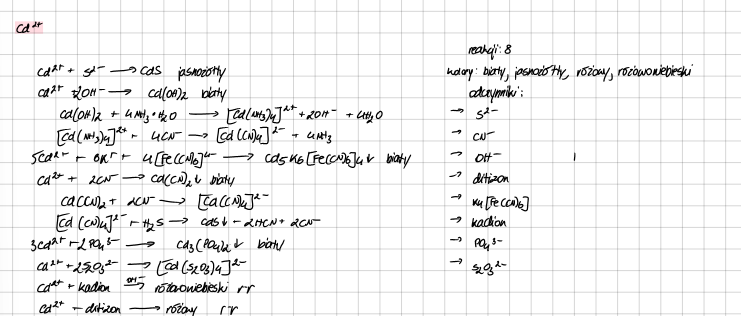 Cd²⁺
Cd²⁺ + S²⁻ → CdS jasnożółty
Cd²⁺ + 2OH⁻ → Cd(OH)₂ biały
Cd(OH)₂ + 4NH₃·H₂O → [Cd(NH₃)₄]²⁺ + 2OH⁻ + 4H₂O
[Cd(NH₃)₄]²⁺ + 4CN⁻ → [Cd(CN)₄]²⁻ + 4NH₃
5Cd²⁺ + 6K⁺ + 4[Fe(CN)₆]⁴⁻ → Cd₅K₆[Fe(CN)₆]₄↓ biały
Cd²⁺ + 2CN⁻ → Cd(CN)₂↓ biały
Cd(CN)₂ + 2CN⁻ → [Cd(CN)₄]²⁻
[Cd(CN)₄]²⁻ + H₂S → CdS↓ + 2HCN + 2CN⁻
3Cd²⁺ + 2PO₄³⁻ → Cd₃(PO₄)₂↓ biały
Cd²⁺ + 2S₂O₃²⁻ → [Cd(S₂O₃)₄]²⁻
Cd²⁺ + kadion OH⁻→ różowoniebieski r-r
Cd²⁺ + ditizon → różowy r-r
reakcji: 8
kolory: biały, jasnożółty, różowy, różowoniebieski
odczynniki:
→ S²⁻
→ CN⁻
→ OH⁻
→ ditizon
→ K₄[Fe(CN)₆]
→ kadion
→ PO₄³⁻
→ S₂O₃²⁻